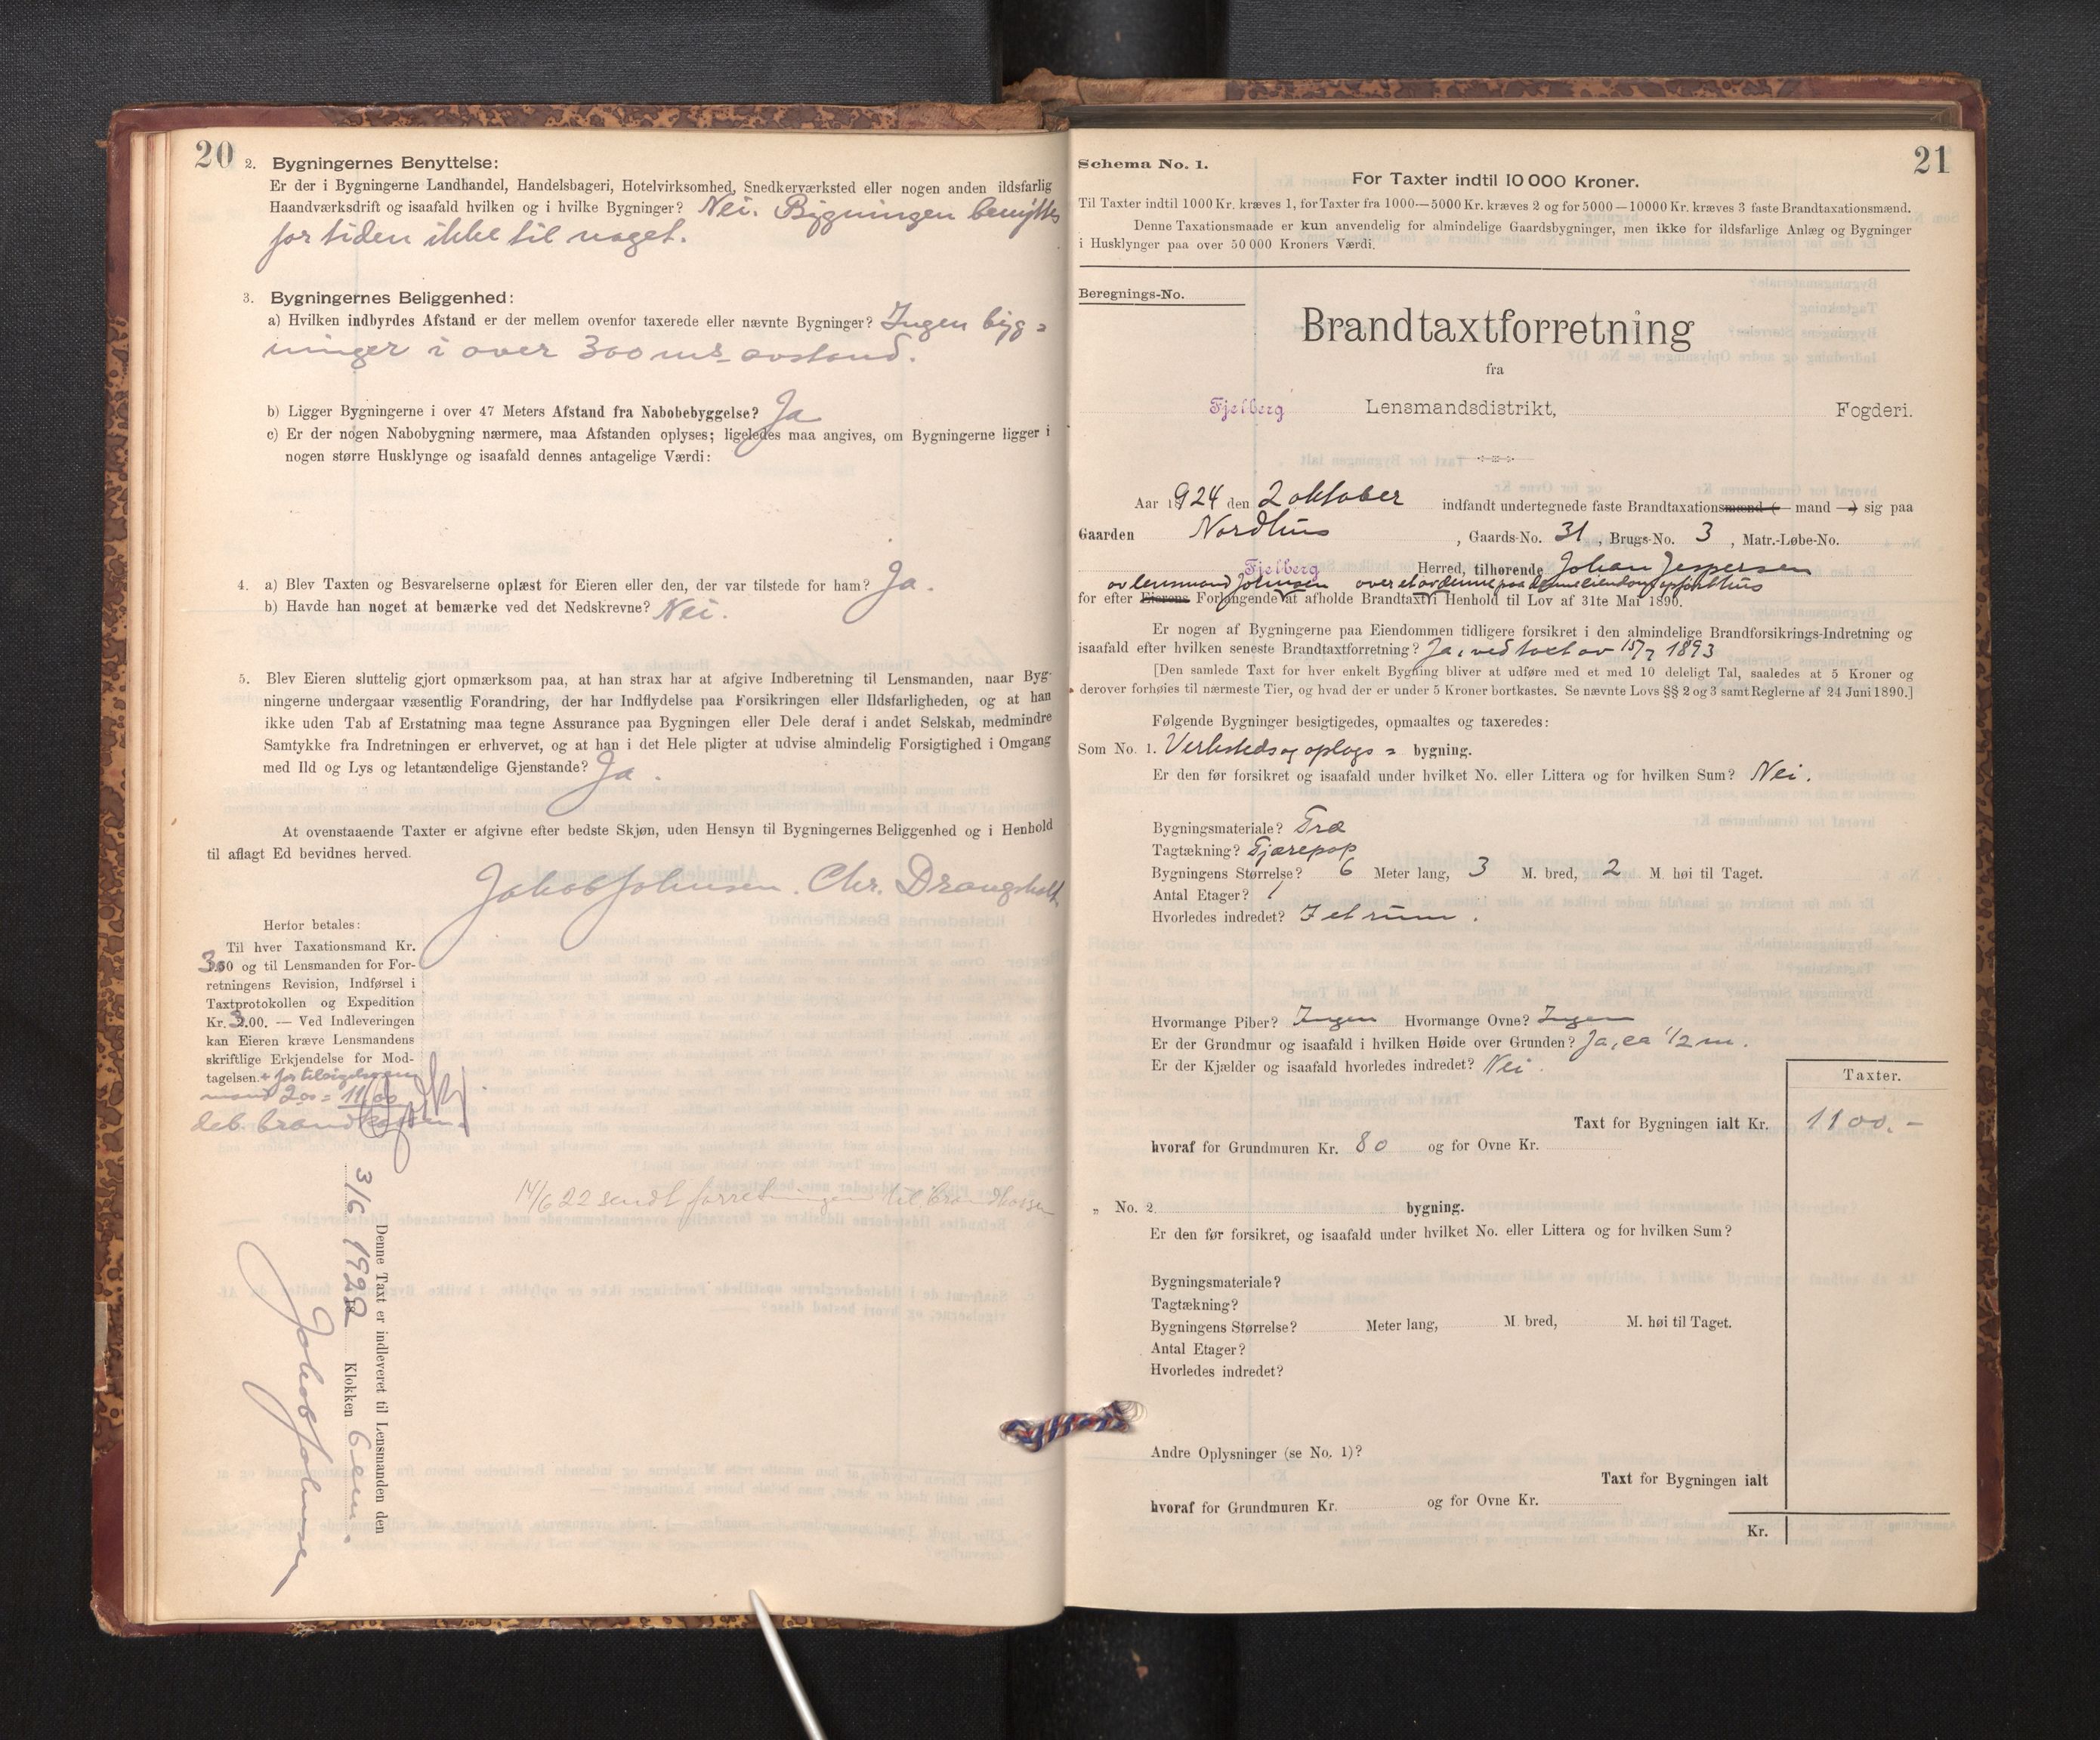 20
2. Bygningernes Benyttelse:
Er der i Bygningerne Landhandel, Handelsbageri, Hotelvirksomhed, Snedkerværksted eller nogen anden ildsfarlig
Haandværksdrift og isaafald hvilken og i hvilke Bygninger? Nei. Bygningen benyttes
for tiden ikke til noget.
3. Bygningernes Beliggenhed:
a) Hvilken indbyrdes Afstand er der mellem ovenfor taxerede eller nævnte Bygninger? Ingen byg=
ninger i over 300 ms avstand.
b) Ligger Bygningerne i over 47 Meters Afstand fra Nabobebyggelse? Ja
c) Er der nogen Nabobygning nærmere, maa Afstanden oplyses; ligeledes maa angives, om Bygningerne ligger i
nogen større Husklynge og isaafald dennes antagelige Værdi:
4. a) Blev Taxten og Besvarelserne oplæst for Eieren eller den, der var tilstede for ham? Ja.
b) Havde han noget at bemærke ved det Nedskrevne? Nei.
5. Blev Eieren sluttelig gjort opmærksom paa, at han strax har at afgive Indberetning til Lensmanden, naar Byg-
ningerne undergaar væsentlig Forandring, der har Indflydelse paa Forsikringen eller Ildsfarligheden, og at han
ikke uden Tab af Erstatning maa tegne Assurance paa Bygningen eller Dele deraf i andet Selskab, medmindre
Samtykke fra Indretningen er erhvervet, og at han i det Hele pligter at udvise almindelig Forsigtighed i Omgang
med Ild og Lys og letantændelige Gjenstande? Ja.
At ovenstaaende Taxter er afgivne efter bedste Skjøn, uden Hensyn til Bygningernes Beliggenhed og i Henhold
til aflagt Ed bevidnes herved.
Jakob Johnsen. Chr. Drangsholt.
Herfor betales:
Til hver Taxationsmand Kr.
3.00 og til Lensmanden for For-
retningens Revision, Indførsel i
Taxtprotokollen og Expedition
Kr. 3.00. — Ved Indleveringen
kan Eieren kræve Lensmandens
skriftlige Erkjendelse for Mod-
tagelsen. + for tilsigelse
mand 2.00 = 11/00
deb. brandkassen.
14/6 22 sendt forretningen til brandkassen
Denne Taxt er indleveret til Lensmanden den
3/6 1922 Klokken 6 em.
Jakob Johnsen
21
Schema No. 1.
For Taxter indtil 10 000 Kroner.
Til Taxter indtil 1000 Kr. kræves 1, for Taxter fra 1000—5000 Kr. kræves 2 og for 5000—10000 Kr. kræves 3 faste Brandtaxationsmænd.
Denne Taxationsmaade er kun anvendelig for almindelige Gaardsbygninger, men ikke for ildsfarlige Anlæg og Bygninger
i Husklynger paa over 50 000 Kroners Værdi.
Beregnings-No.
Brandtaxtforretning
fra
Fjelberg Lensmandsdistrikt, Fogderi.
Aar 1924 den 2 oktober indfandt undertegnede faste Brandtaxationsmænd (— mand —) sig paa
Gaarden Nordhus, Gaards-No. 31, Brugs-No. 3, Matr.-Løbe-No.
Fjelberg Herred, tilhørende Johan Jespersen
av lensmand Johnsen over et av denne paa denne eiendom opført hus
for efter Eierens Forlangende at afholde Brandtaxt i Henhold til Lov af 31te Mai 1890.
Er nogen af Bygningerne paa Eiendommen tidligere forsikret i den almindelige Brandforsikrings-Indretning og
isaafald efter hvilken seneste Brandtaxtforretning? Ja, ved taxt av 15/7 1893
[Den samlede Taxt for hver enkelt Bygning bliver at udføre med et med 10 deleligt Tal, saaledes at 5 Kroner og
derover forhøies til nærmeste Tier, og hvad der er under 5 Kroner bortkastes. Se nævnte Lovs §§ 2 og 3 samt Reglerne af 24 Juni 1890.]
Følgende Bygninger besigtigedes, opmaaltes og taxeredes:
Som No. 1. Verksteds og oplags = bygning.
Er den før forsikret og isaafald under hvilket No. eller Littera og for hvilken Sum? Nei.
Bygningsmateriale? Træ
Tagtækning? Tjærepap
Bygningens Størrelse? 6 Meter lang, 3 M. bred, 2 M. høi til Taget.
Antal Etager? 1
Hvorledes indredet? I et rum.
Hvormange Piber? Ingen Hvormange Ovne? Ingen
Er der Grundmur og isaafald i hvilken Høide over Grunden? Ja, ca 1/2 m.
Er der Kjælder og isaafald hvorledes indredet? Nei.
Taxter.
Taxt for Bygningen ialt Kr. 1100.-
hvoraf for Grundmuren Kr. 80 og for Ovne Kr.
„ No. 2. bygning.
Er den før forsikret, og isaafald under hvilket No. eller Littera og for hvilken Sum?
Bygningsmateriale?
Tagtækning?
Bygningens Størrelse? Meter lang, M. bred, M. høi til Taget.
Antal Etager?
Hvorledes indredet?
Andre Oplysninger (se No. 1)?
Taxt for Bygningen ialt
hvoraf for Grundmuren Kr. og for Ovne Kr.
Kr.